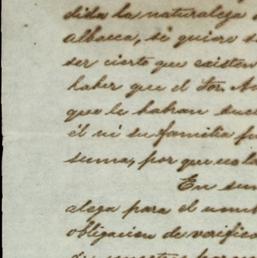 dida la naturaleza
albacea, si quiere
ser cierto que existen
haber que el Sor.
que le habian
él ni su familia
suma, por que no la
En
alega para el
obligacion de